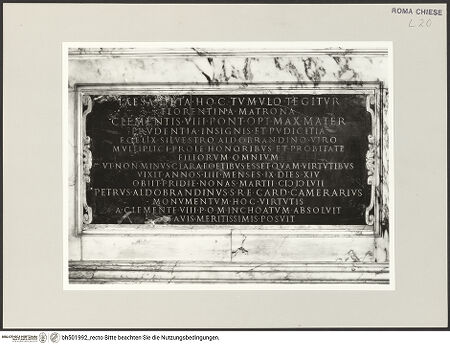 ROMA CHIESE
L 20
LAESA DETA HOC TVMVLO TEGITVR
FLORENTINA MATRONA
CLEMENTIS·VIII·PONT·OPT·MAX·MATER
PRVDENTIA·INSIGNIS·ET·PVDICITIA
SILVESTRO ALDOBRANDINO·VIRO
MVLTIPLICI·PROLE·HONORIBVS·ET·PROBITATE
FILIORVM·OMNIVM
VT·NON·MINVS·CLARA·
VIXIT·ANNOS·LIII·MENSES·IX·DIES·XIV
OBIIT·PRIDIE·NONAS·MARTII
PETRVS·ALDOBRANDINVS·S·R·E·CARD·CAMERARIVS
MONVMENTVM·HOC·VIRTVTIS
A·CLEMENTE·VIII·P·O·M·INCHOATVM·ABSOLVIT
AVIS·MERITISSIMIS·POSVIT
bh501992_recto Bitte beachten Sie die Nutzungsbedingungen.